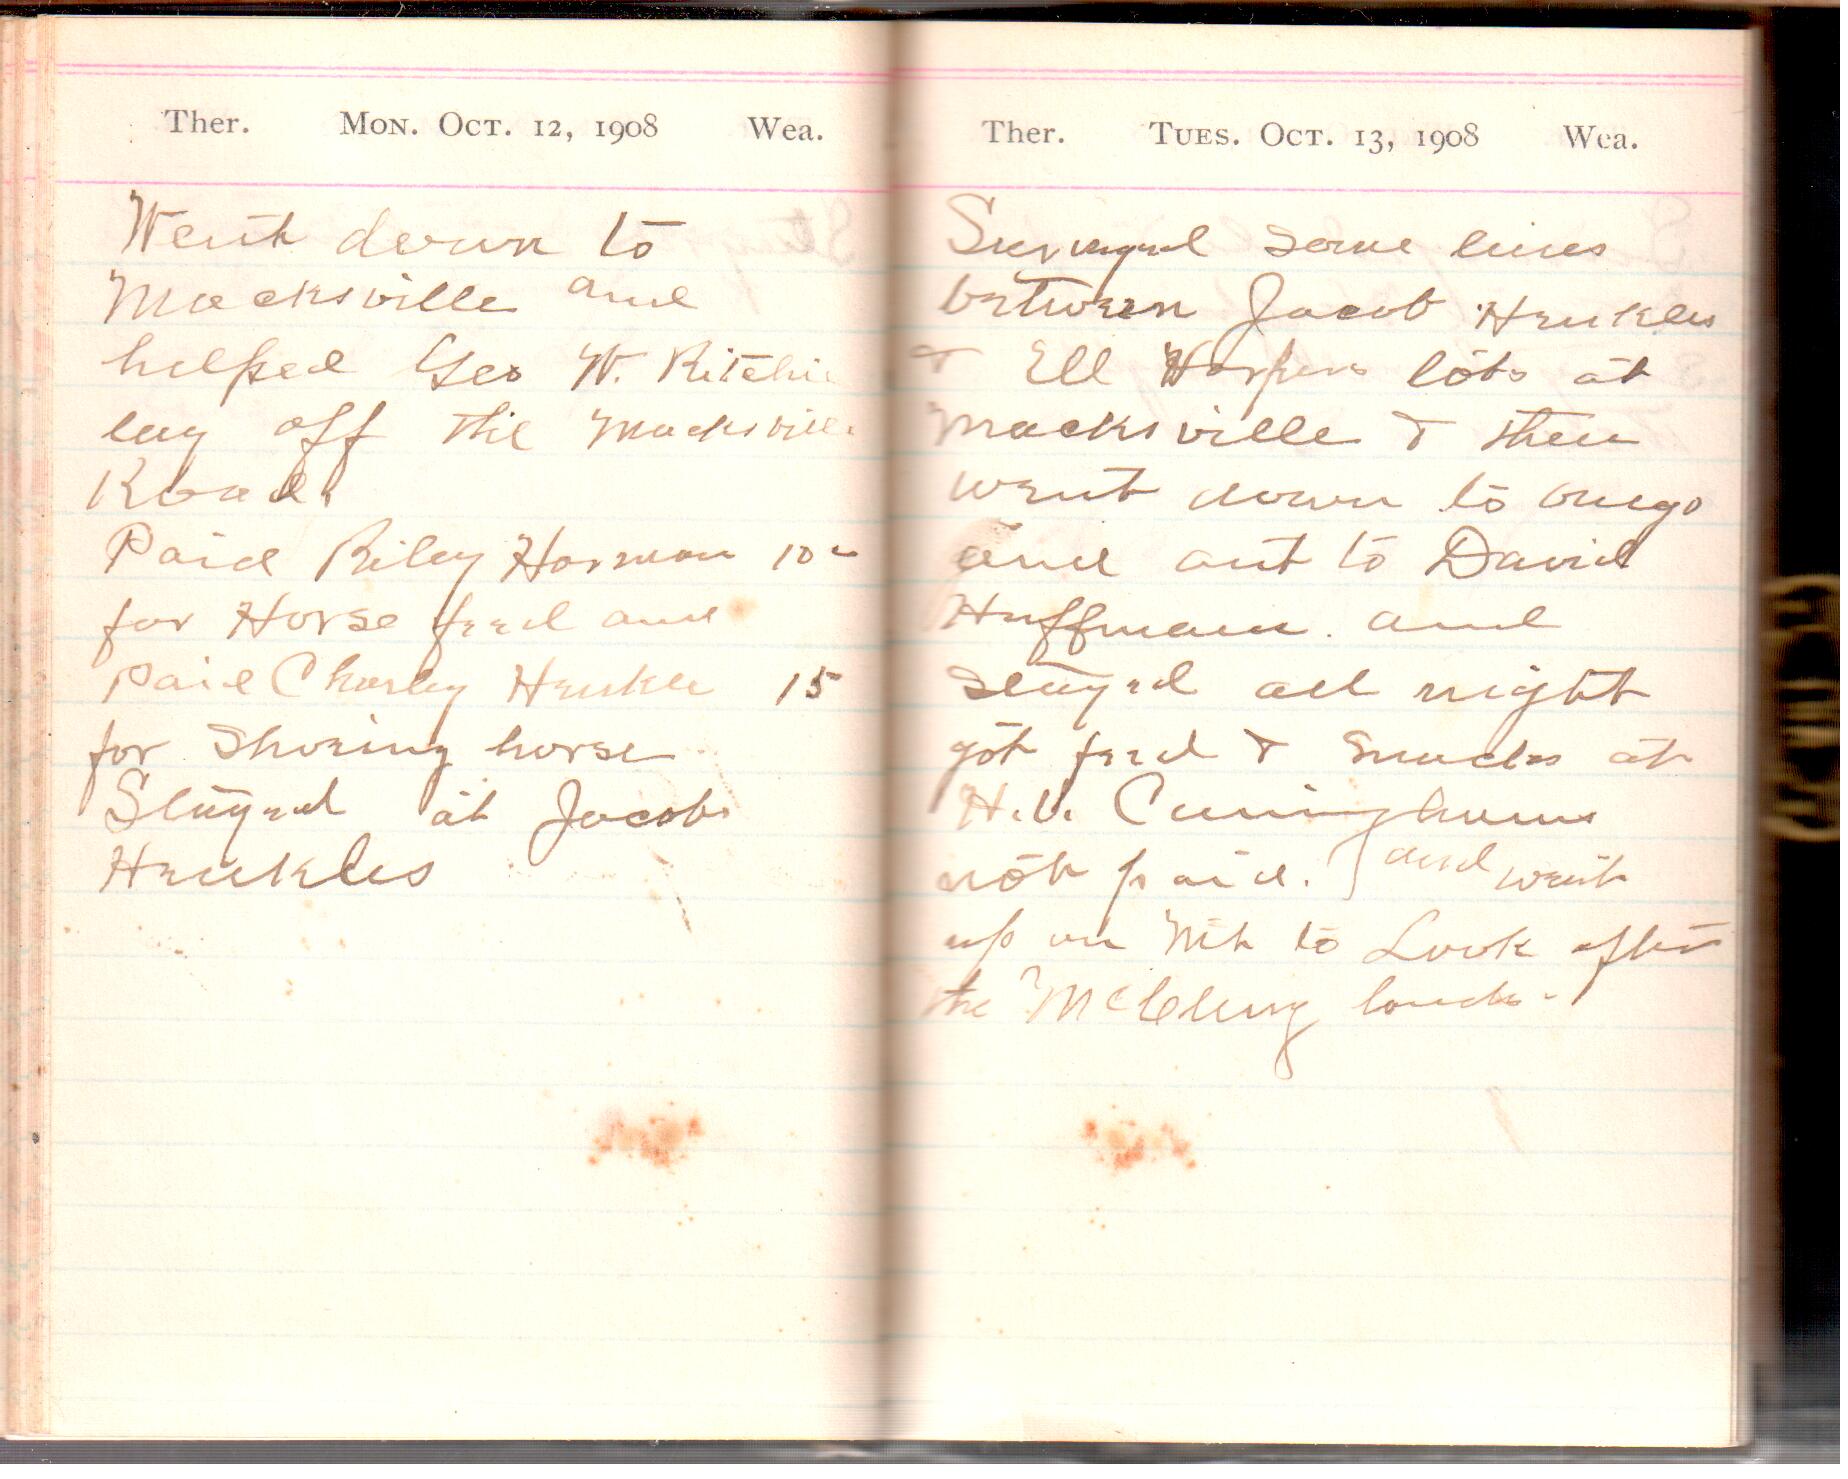 Ther. Mon. Oct. 12, 1908 Wea.
Went down to
Macksville and
helped Geo W. Ritchie
lay off the Macksville
Road.
Paid Riley Harman 10c
for Horse feed and
paid Charley Henkle 15
for Shoeing horse
Stayed at Jacob
Henkles
Ther. Tues. Oct. 13, 1908 Wea.
Surveyed some lines
between Jacob Henkles
& Ell Harpers lots at
Macksville & then
went down to Onego
and out to David
Huffman. and
Stayed all night
got feed & Snacks at
H.V. Cuninghams
not paid. and went
up on Mt to Look after
the McClung lands.